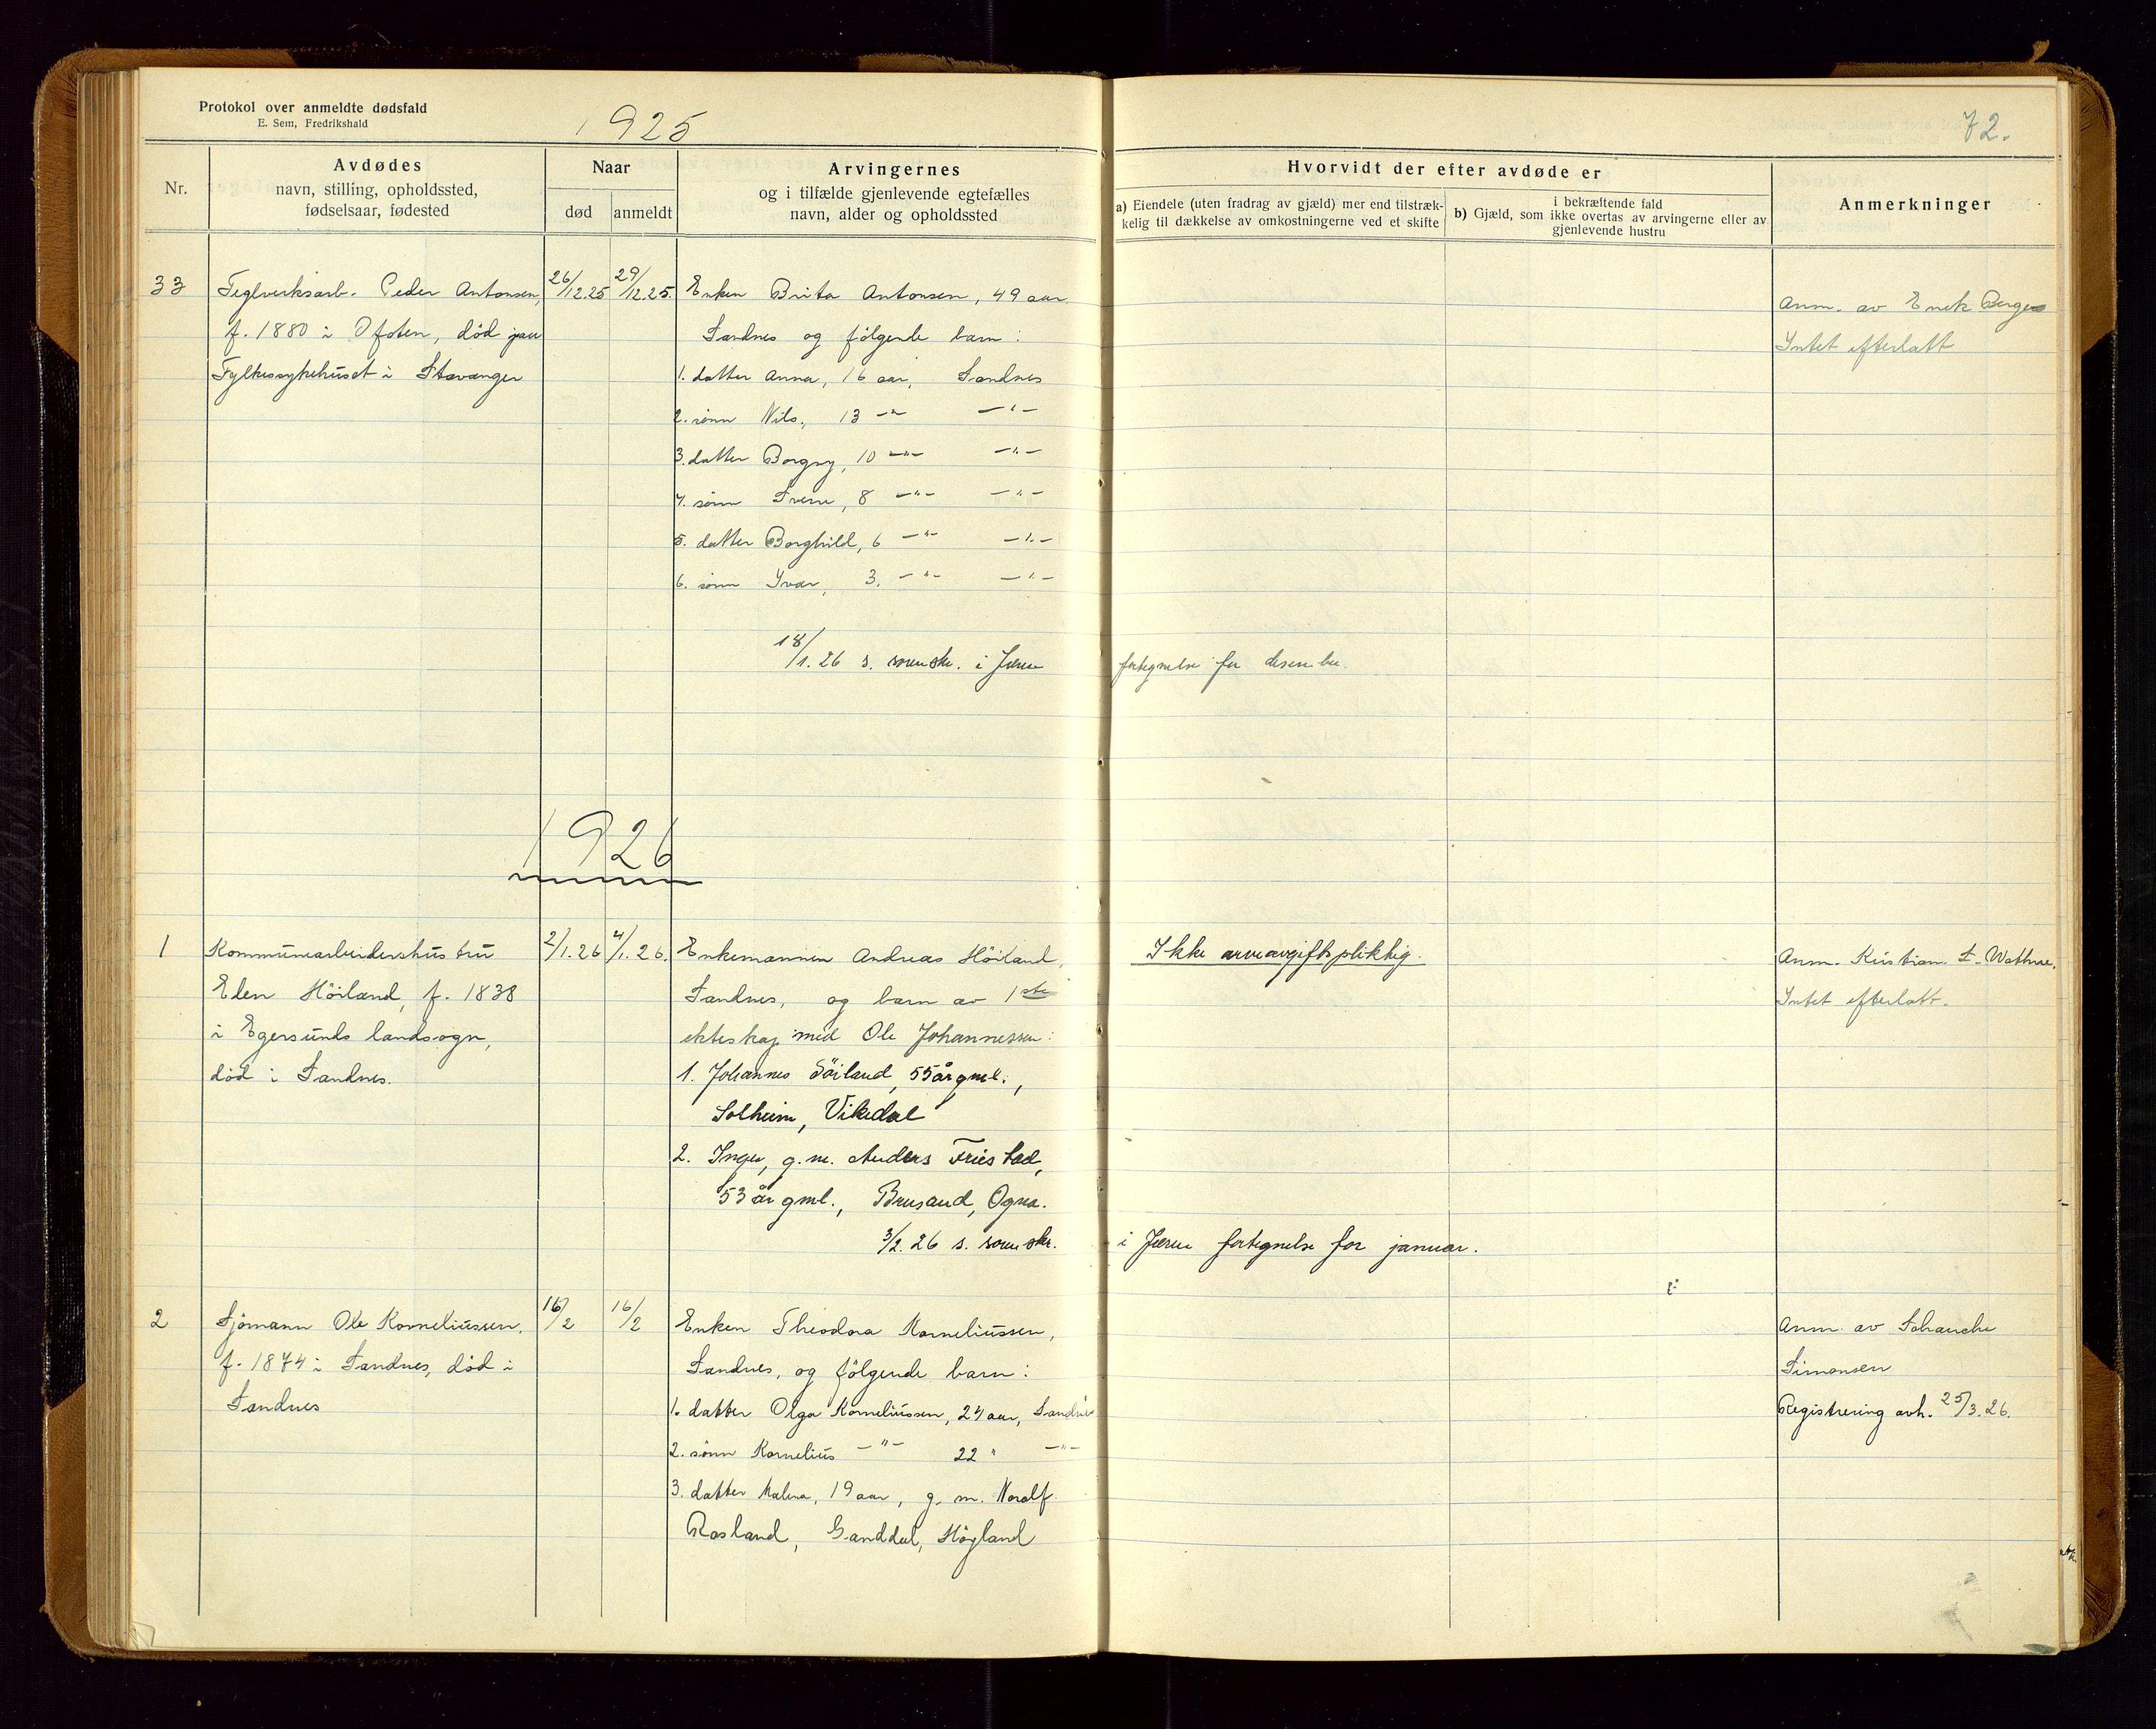 Protokol over anmeldte dødsfald
E. Sem, Fredrikshald
1925
72.
Nr.
Avdødes
navn, stilling, opholdssted,
fødselsaar, fødested
Naar
død
anmeldt
Arvingernes
og i tilfælde gjenlevende egtefælles
navn, alder og opholdssted
Hvorvidt der efter avdøde er
a) Eiendele (uten fradrag av gjæld) mer end tilstræk-
kelig til dækkelse av omkostningerne ved et skifte
i bekræftende fald
b) Gjæld, som ikke overtas av arvingerne eller av
gjenlevende hustru
Anmerkninger
33
Teglverksarb. Peder Antonsen,
f. 1880 i Ofoten, död paa
Fylkessykehuset i Stavanger
26/12.25
29/12.25.
Enken Brita Antonsen, 49 aar,
Sandnes og följgende barn:
1. datter Anna, 16 aar, Sandnes
2. sönn Nils, 13 -"- -"-
3. datter Borgny, 10 -"- -"-
4. sönn Sverre, 8 -"- -"-
5. datter Borghild, 6 -"- -"-
6. sönn Ivar, 3. -"- -"-
18/1.26 s. sorenskr. i Jæren fortegnelse for desember.
Anm. av Berge
Intet efterlatt
1926
1
Kommunearbeidershustru
Elen Höiland, f. 1838
i Egersunds landsogn,
död i Sandnes.
2/1.26
4/1.26.
Enkemannen Andreas Höiland,
Sandnes, og barn av 1ste
ekteskap med Ole Johannessen:
1. Johannes 55 år gml.,
Solheim, Vikedal
2. Inger, g.m. Anders Friestad,
53 år gml., Brusand, Ogna.
3/2.26 s. sorenskr. i Jæren fortegnelse for januar.
Ikke arveavgiftspliktig.
Anm. Kristian S. Wathne.
Intet efterlatt.
2
Sjömann Ole Korneliussen,
f. 1874 i Sandnes, död i
Sandnes
16/2
16/2
Enken Theodora Korneliussen,
Sandnes, og fölgende barn:
1. datter Olga Korneliussen, 24 aar, Sandnes
2. sönn Kornelius -"- 22 " -"-
3. datter Malena, 19 aar, g. m. Noralf
Rosland, Ganddal, Höyland
Anm. av Schanche
Simonsen
Registrering avh. 25/3.26.